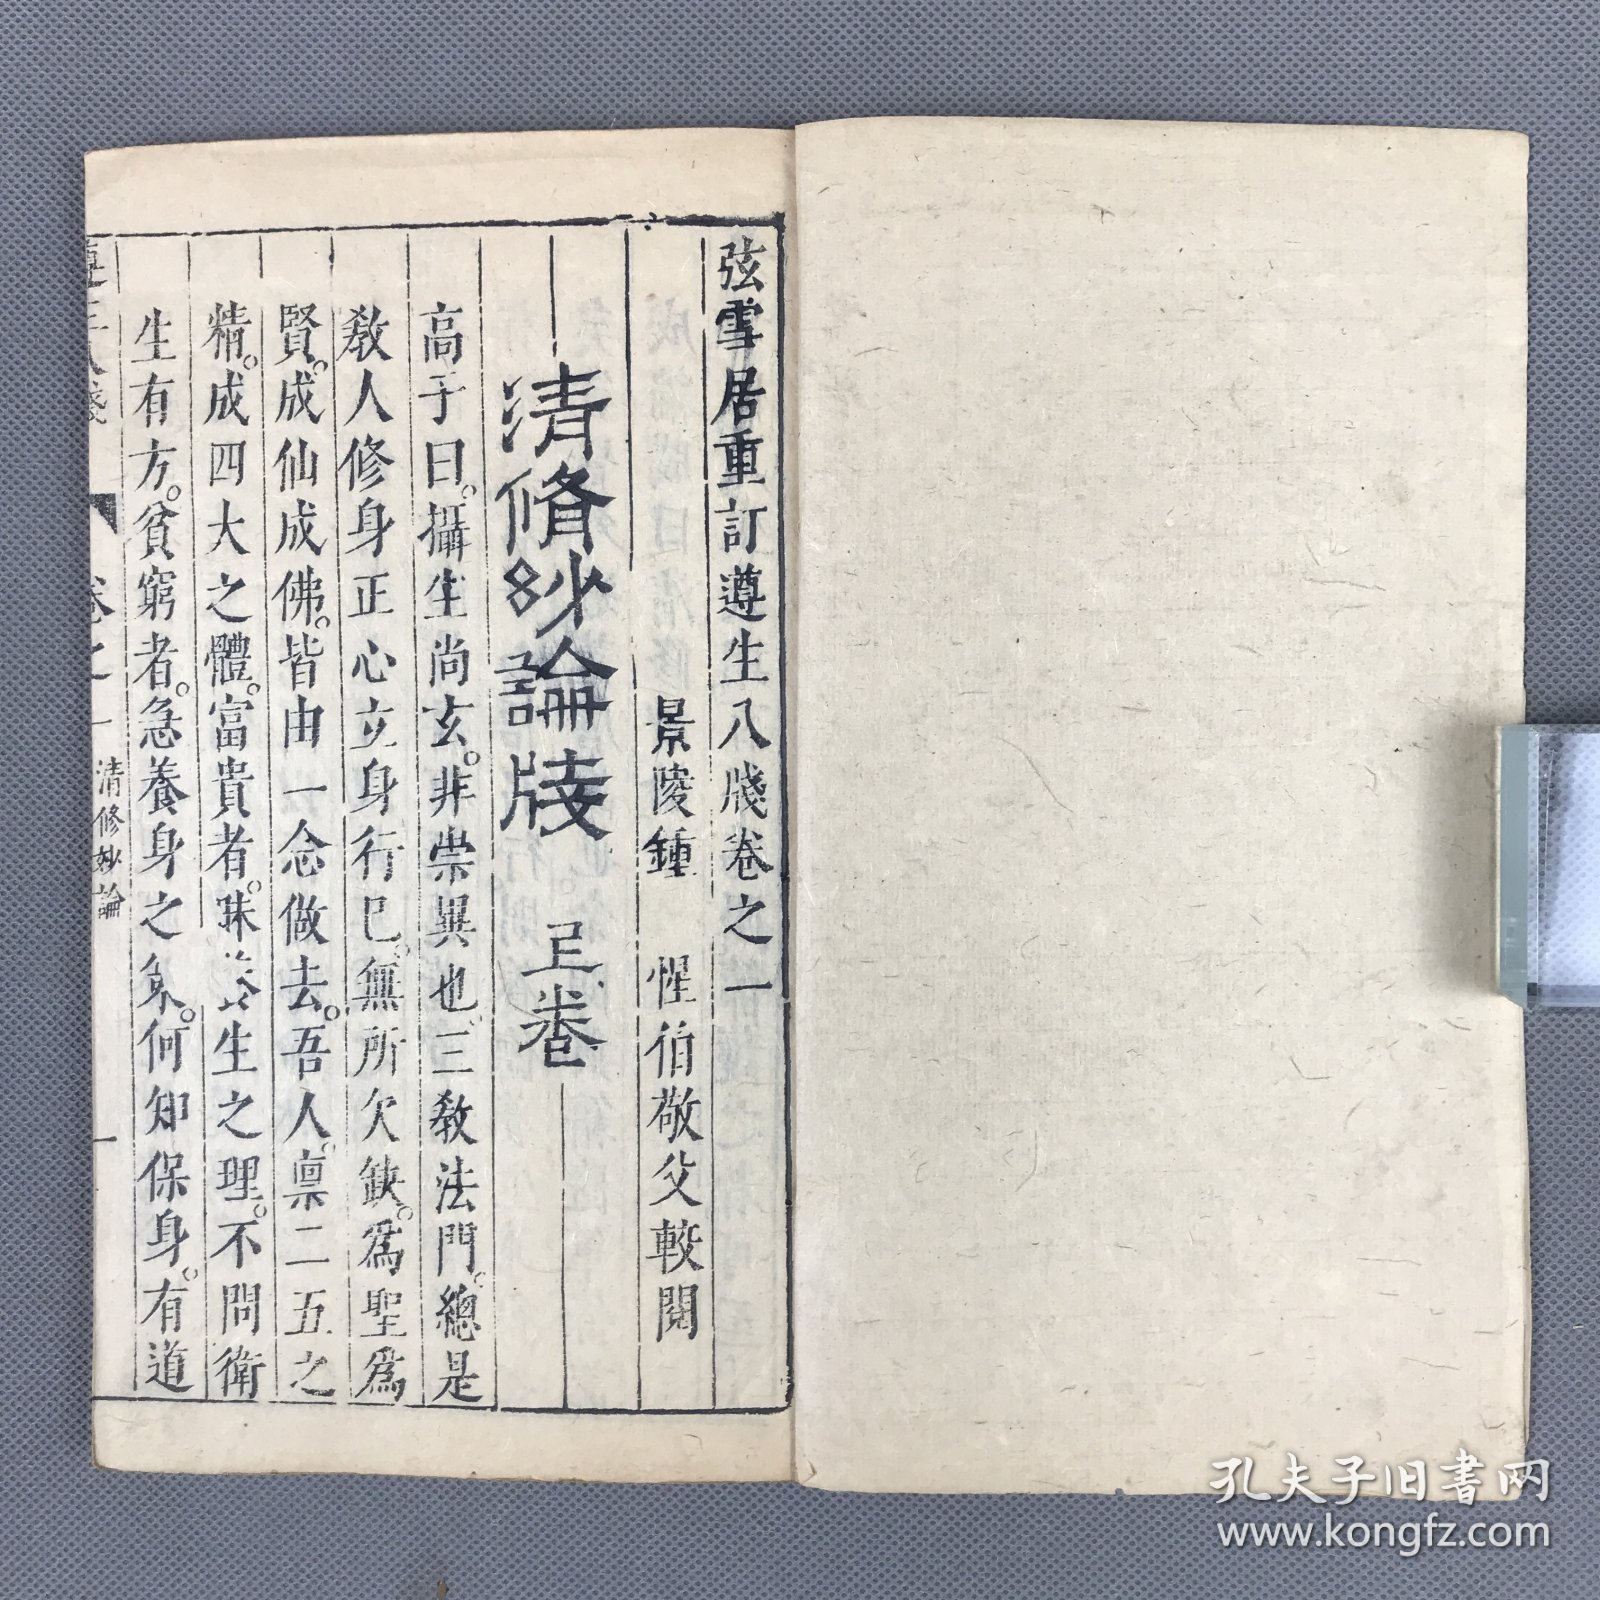 弦雪居重訂遵生八牋卷之一
景陵鍾 惺伯敬父較閱
清脩玅論牋 上卷
高子曰攝生尚玄。非崇異也三敎法門。總是
敎人修身正心立身行巳。無所欠缺。爲聖爲
賢。成仙成佛。皆由一念做去。吾人。禀二五之
精。成四大之體。富貴者。昧養生之理。不問衛
生有方。貧窮者。急養身之策。何知保身。有道
卷之一 清修妙論 一
孔夫子旧书网
www.kongfz.com